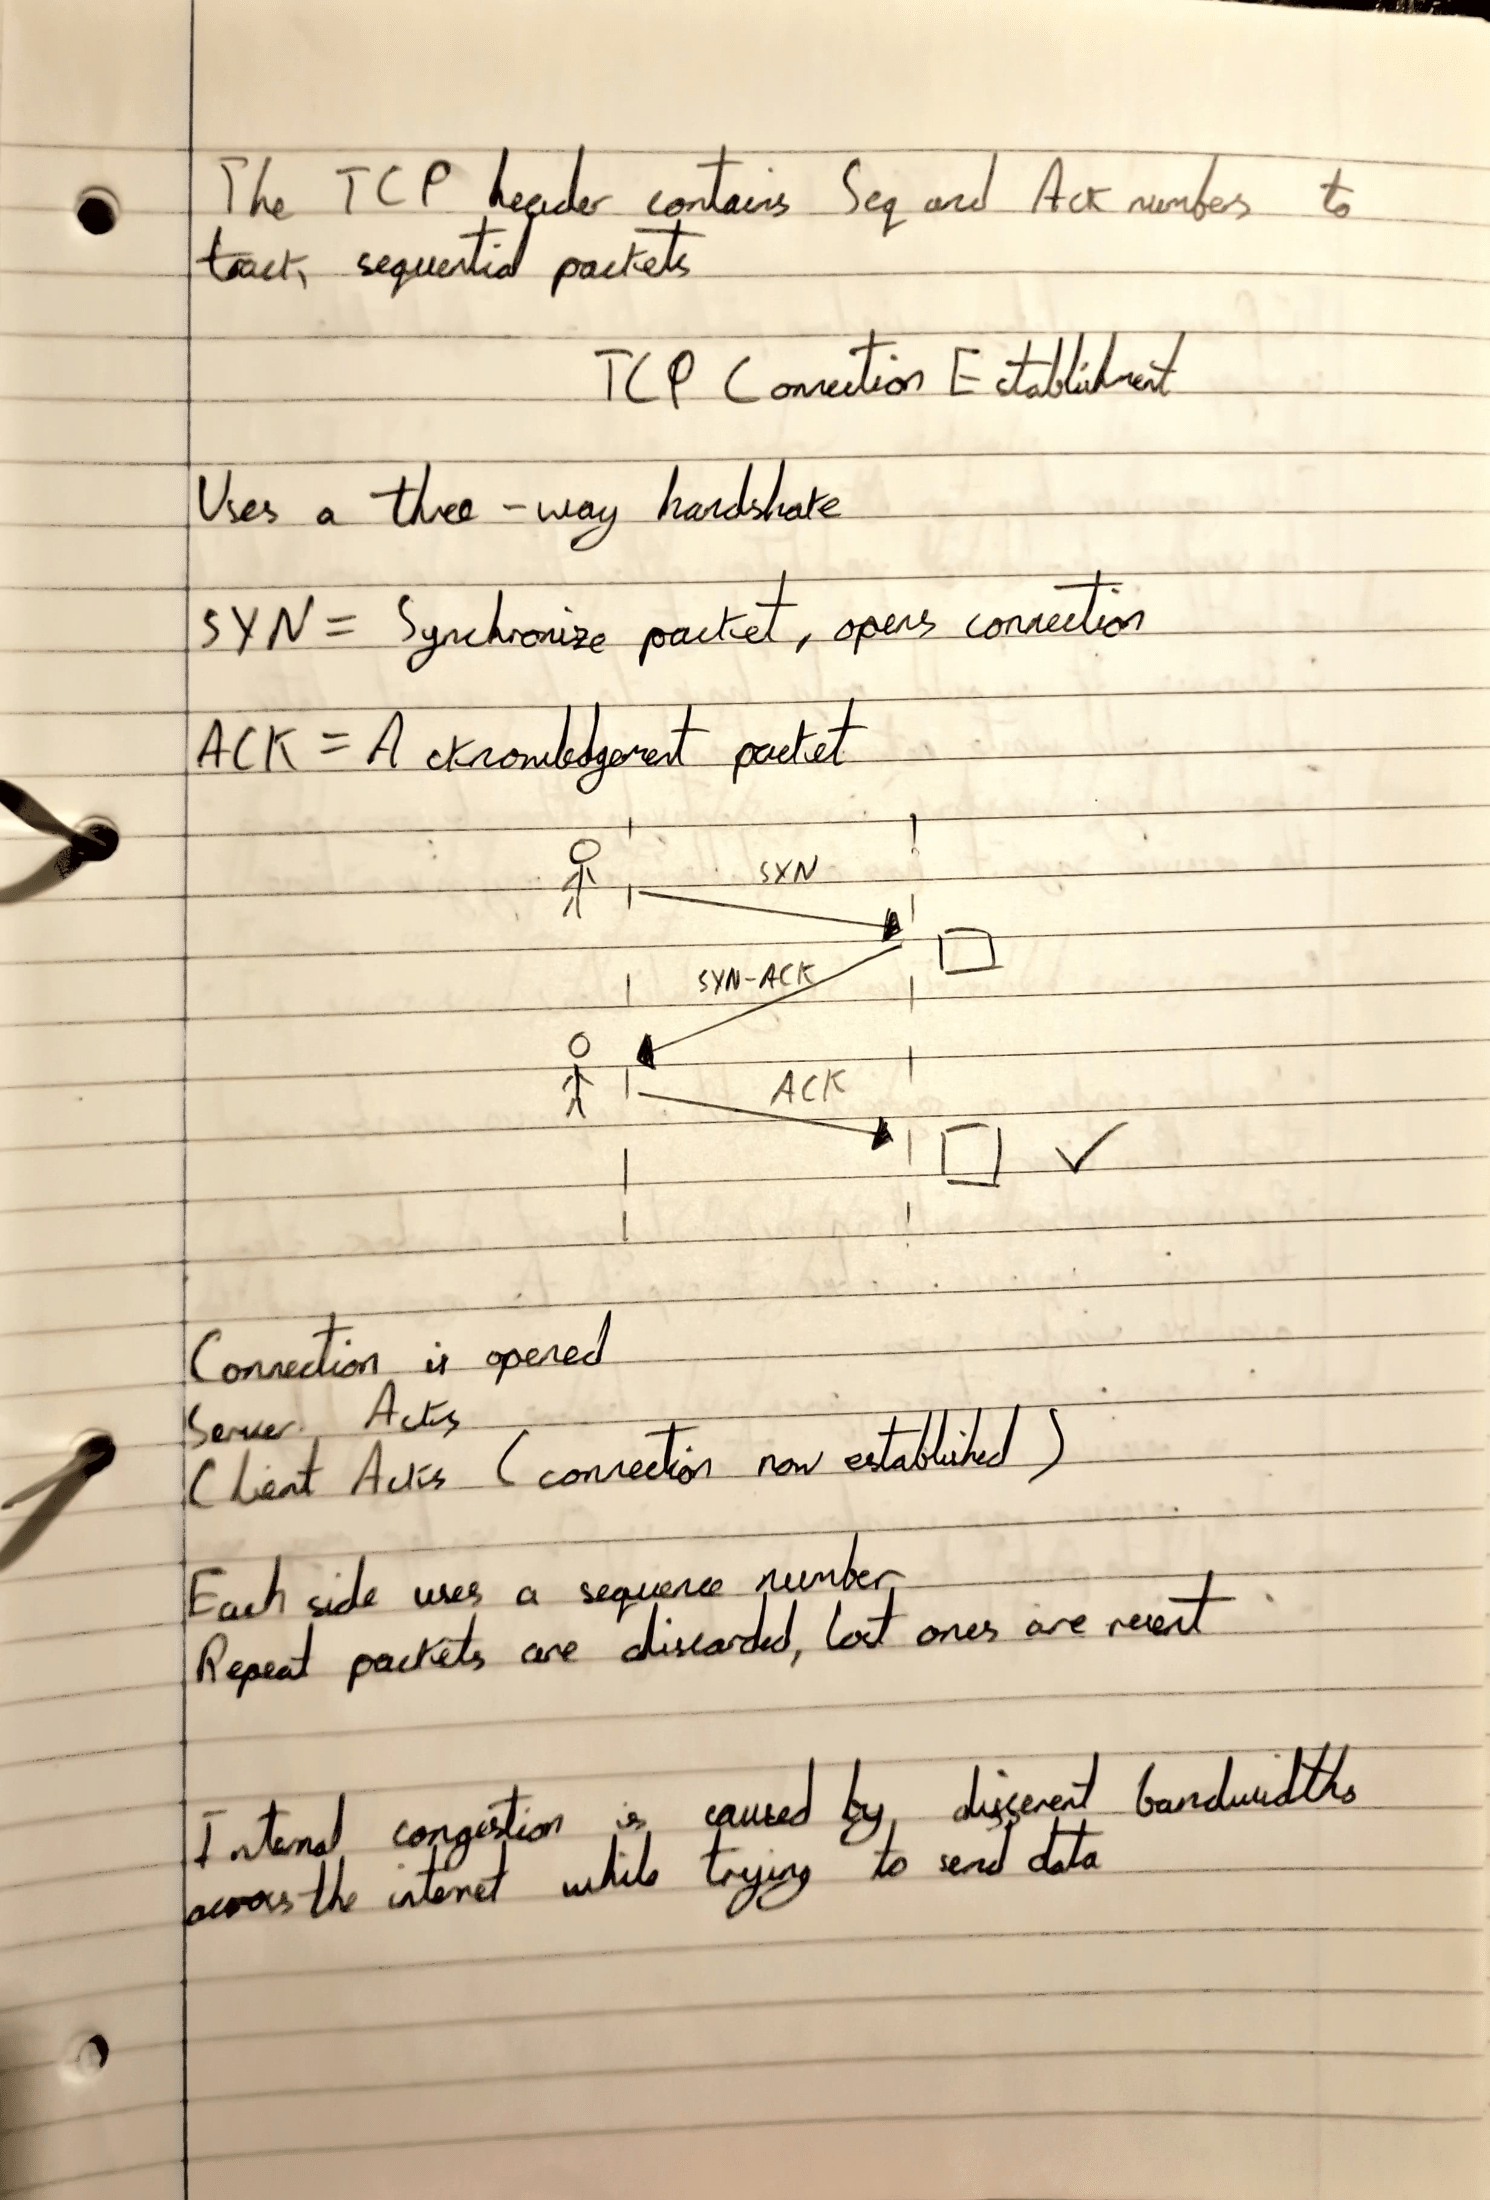 The TCP header contains Seq and Ack numbers to
track sequential packets
TCP Connection Establishment
Uses a three-way handshake
SYN = Synchronize packet, opens connection
ACK = Acknowledgement packet
SYN
SYN-ACK
ACK
Connection is opened
Server Acks
Client Acks (connection now established)
Each side uses a sequence number
Repeat packets are discarded, lost ones are resent
Internal congestion is caused by different bandwidths
across the internet while trying to send data